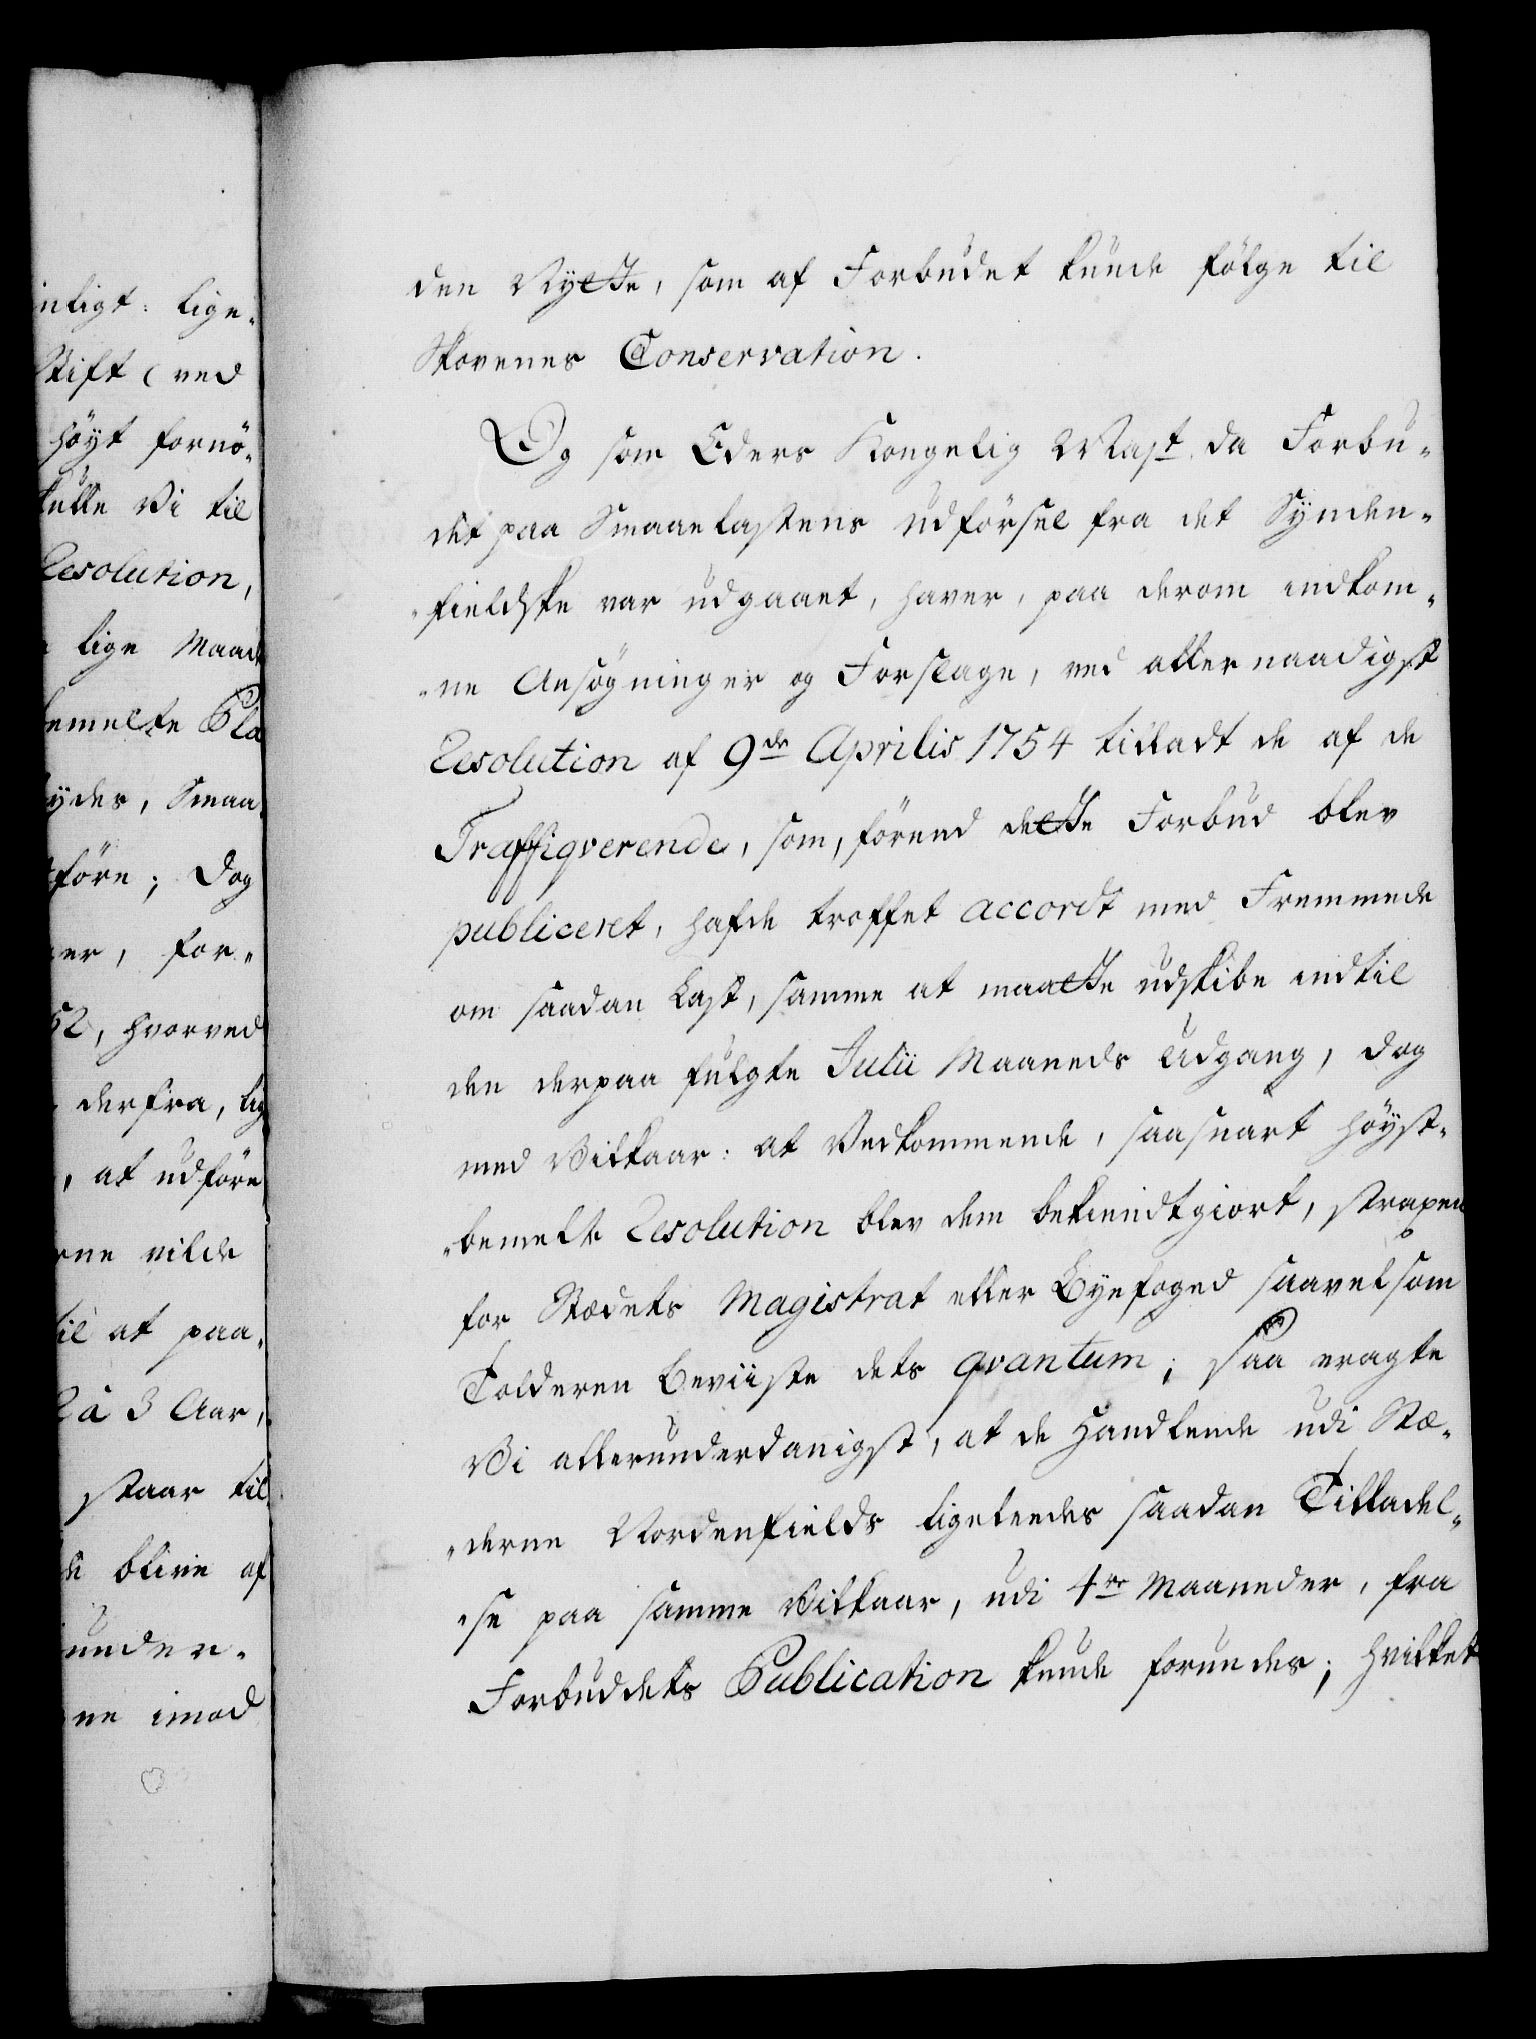 inligt: lige„
Stift (ved
höyt fornö„
kulle Vi til
Resolution,
lige Maade
bemelte Pla
ydes, Smaa
före; Dog
er, for„
52, hvorved
derfra, lig
, at udföre
rne vilde
til at paa„
2 à 3 Aar,
staar til
de blive af
under„
ne imod
den Nytte, som af Forbudet kunde fölge til
Skovenes Conservation.
Og som Eders Kongelig Mayst. da Forbu„
det paa Smaaelastens udförsel fra det Synden„
„fieldske var udgaaet, haver, paa derom indkom„
„ne Ansögninger og Forslage, ved allernaadigst
Resolution af 9de Aprilis 1754 tilladt de af de
Traffiqverende, som, förend dette Forbud blev
publiceret, hafde troffet accordt med Fremmede
om saadan Last, samme at maatte udskibe indtil
den derpaa fulgte Julii Maaneds Udgang, dog
med Vilkaar: at Vedkommende, saasnart höyst„
„bemelte Resolution blev dem bekiendtgiort, strapen
for Stædets Magistrat eller Byefoged saavelsom
Tolderen Beviiste dets qvantum; Saa eragte
Vi allerunderdanigst, at de Handlende udi Stæ„
„derne Nordenfields ligeledes saadan Tilladel„
„se paa samme Vilkaar, udi 4re Maaneder, fra
Forbuddets Publication kunde forundes; hvilket